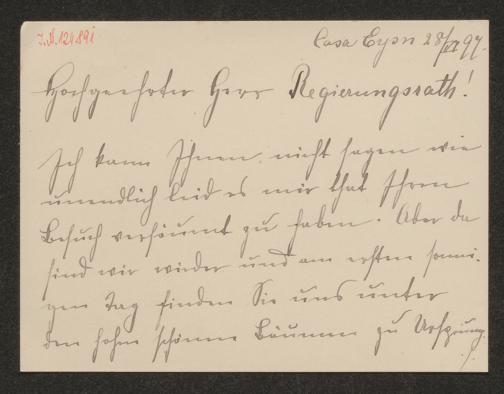 I.N. 124.891
Casa Eysn 28/VI 97.
Hochgeehrter Herr Regierungsrath!
Ich kann Ihnen nicht sagen wie
unendlich leid es mir that Ihren
Besuch versäumt zu haben. Aber da
sind wir wieder und am ersten sonni-
gen Tag finden Sie uns unter
den hohen schönen Bäumen zu Ursprung.